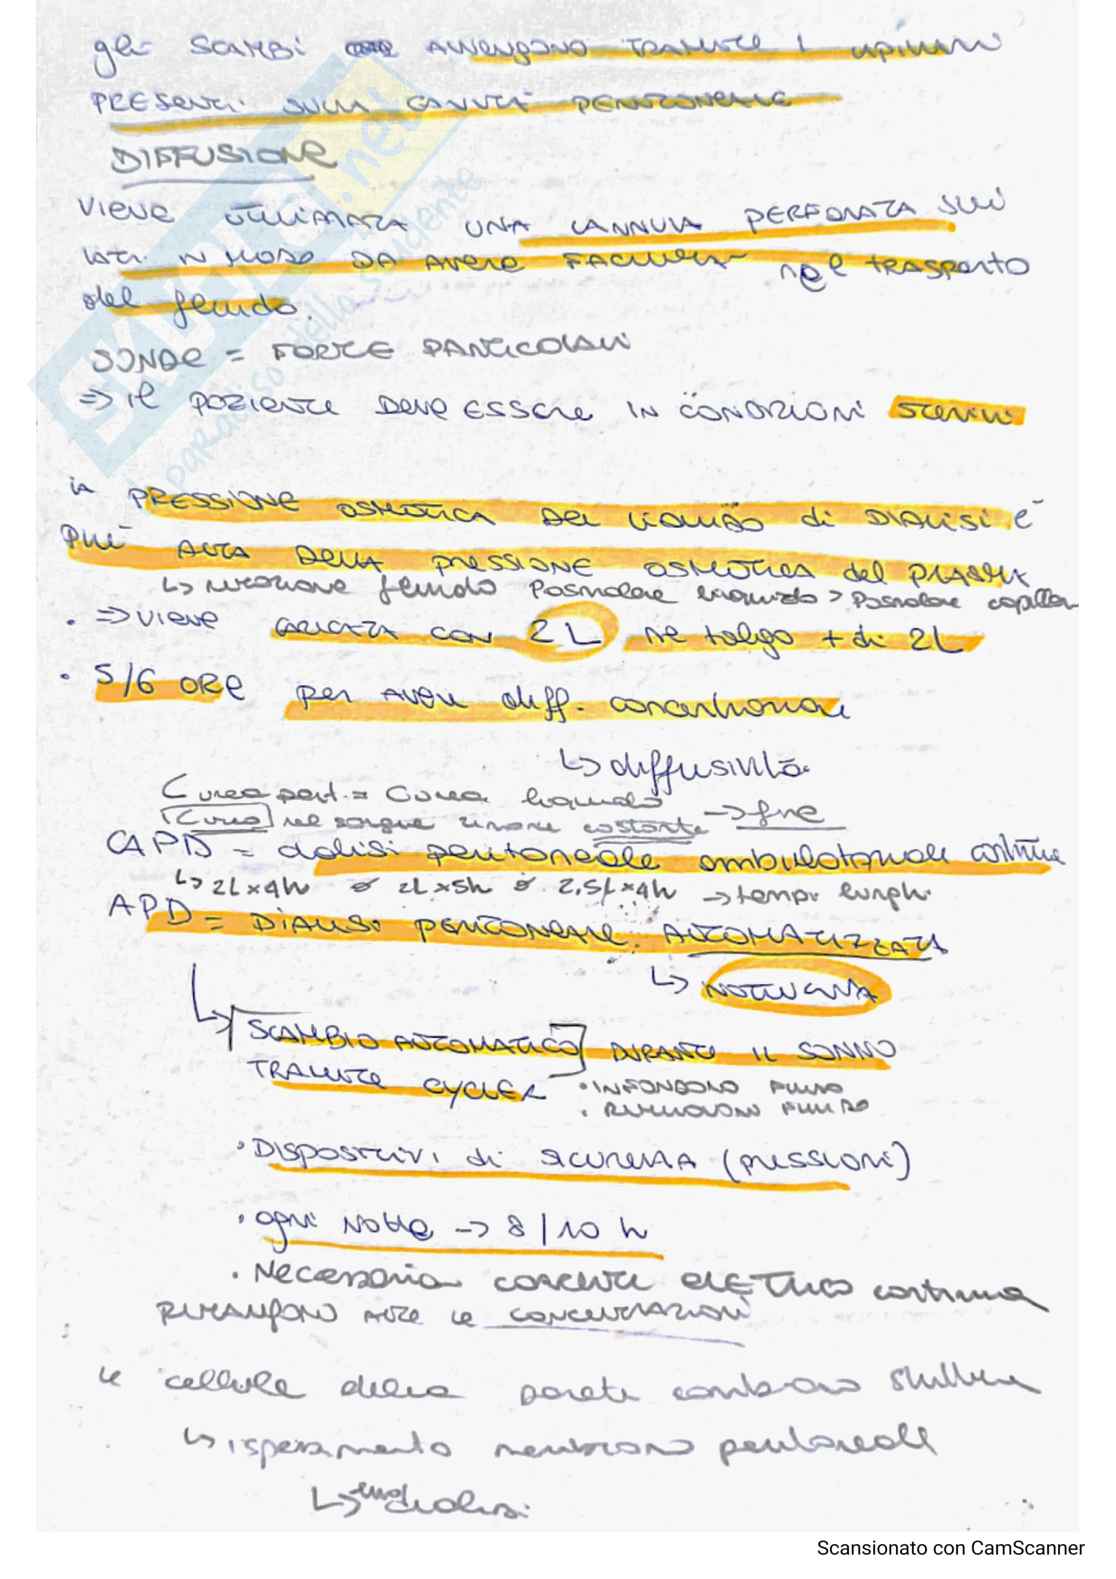 gli SCAMBI AVVENGONO TRAMITE I CAPILLARI
PRESENTI SULLA CAVITÀ PERITONEALE
DIFFUSIONE
VIENE UTILIZZATA UNA CANNULA PERFORATA SUI
LATI IN MODO DA AVERE FACILITÀ nel TRASPORTO
del fluido.
SONDE = FORZE PARTICOLARI
=> il PAZIENTE DEVE ESSERE IN CONDIZIONI STERILI
LA PRESSIONE OSMOTICA DEL LIQUIDO di DIALISI È
PIÙ ALTA DELLA PRESSIONE OSMOTICA del PLASMA
↳ rimozione fluido Posmolare liquido > Posmolare capillare
• => VIENE CARICATA CON 2 L ne tolgo + di 2L
• 5/6 ORE per AVERE diff. concentrazione
↳ diffusività
Curea perit. = Curea liquido
[Curea] nel sangue rimane costante -> fine
CAPD = dialisi peritoneale ambulatoriale continua
↳ 2L x 4h o 2L x 5h o 2,5L x 4h -> tempi lunghi
APD = DIALISI PERITONEALE AUTOMATIZZATA
↳ NOTTURNA
↳ SCAMBIO AUTOMATICO DURANTE IL SONNO
TRAMITE CYCLER • INFONDONO FLUIDO
• RIMUOVONO FLUIDO
• DISPOSITIVI di SICUREZZA (pressioni)
• ogni NOTTE -> 8/10 h
• Necessaria CORRENTE ELETTRICA continua
RIMANGONO ALTE LE CONCENTRAZIONI
le cellule della parete cambiano struttura
↳ ispessimento membrana peritoneale
↳ emodialisi
SKUOLA.net
paradiso dello studente
Scansionato con CamScanner